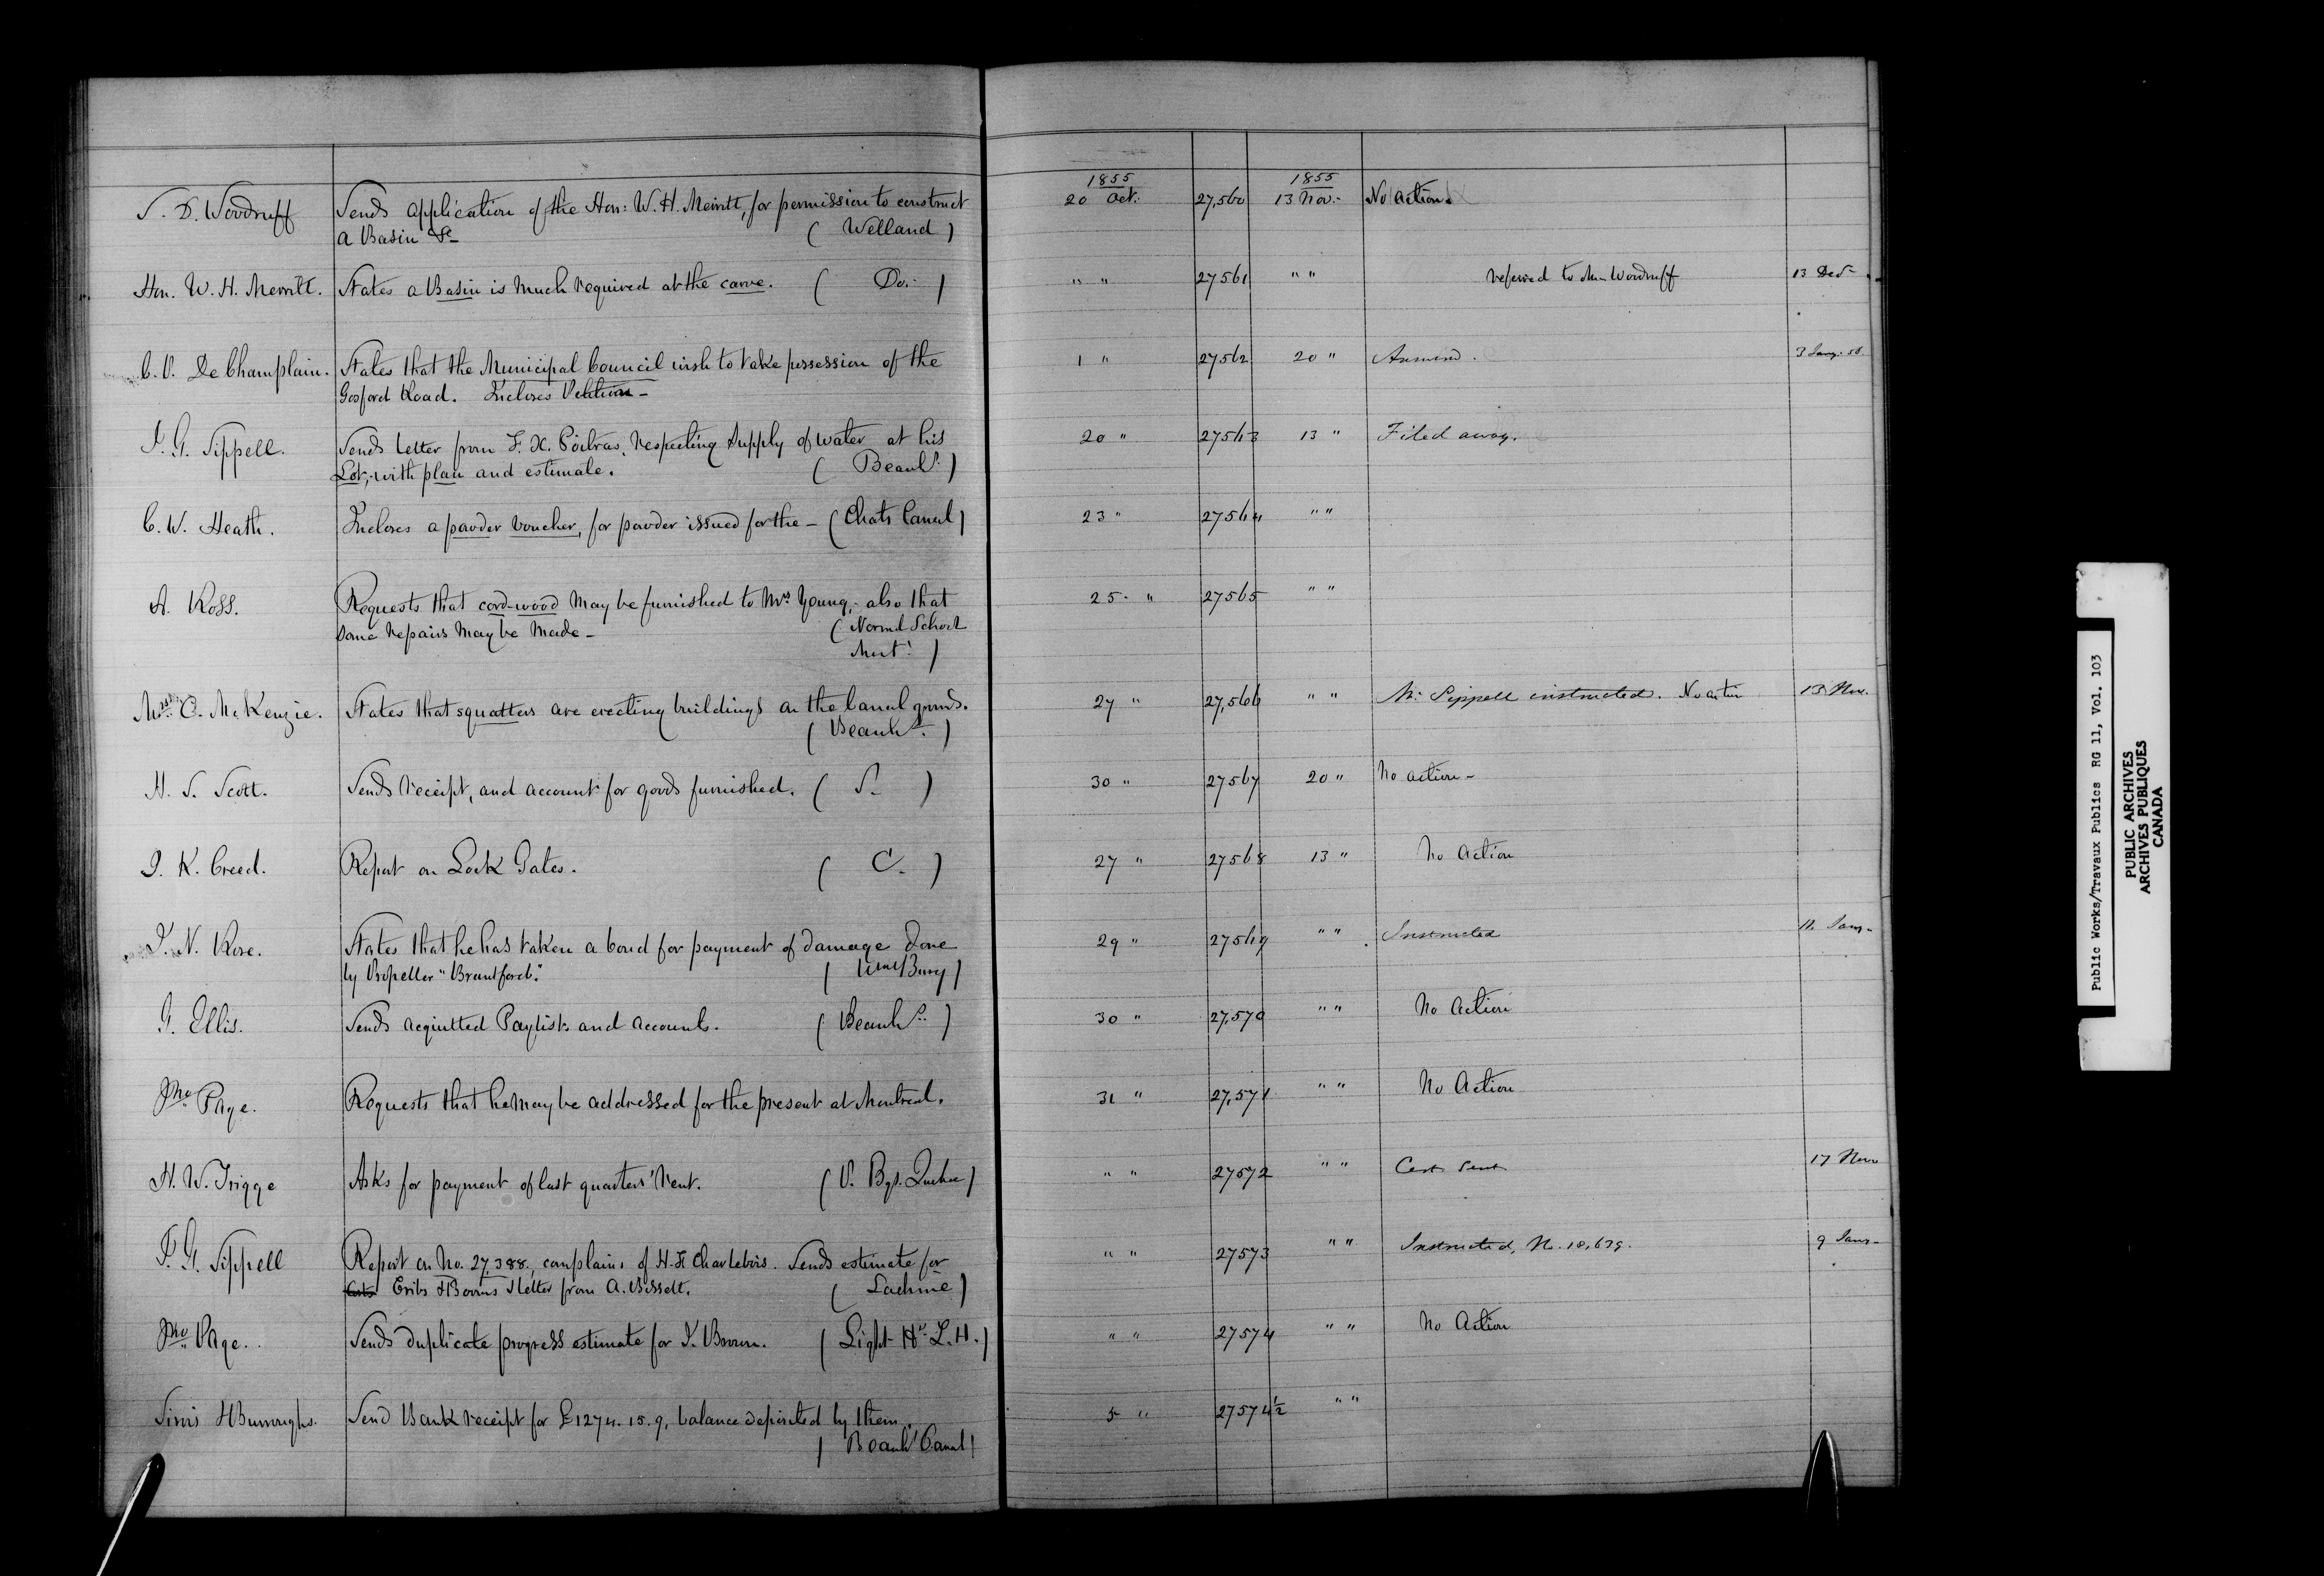 1855 1855
S. D. Woodruff Sends application of the Hon: W. H. Merritt, for permission to construct 20 Oct. 27,560 13 Nov.- No Action.
a Basin &c- ( Welland )
Hon. W. H. Merritt. States a Basin is much required at the curve. ( Do. ) " " 27561 " " referred to Mr Woodruff 13 Decr
C. V. DeChamplain. States that the Municipal Council wish to take possession of the 1 " 27562 20 " Answered. 3 Jany. 56.
Gosford Road. Incloses Petition-
J. G. Sippell. Sends letter from F. X. Poitras, respecting supply of water at his 20 " 27563 13 " Filed away.
Lot, with plan and estimate. ( Beauhs. )
C. W. Heath. Incloses a powder voucher, for powder issued for the - ( Chats Canal ) 23 " 27564 " "
A. Ross. Requests that cord-wood may be furnished to Mrs Young,- also that 25 " 27565 " "
some repairs may be made- ( Normal School
Mont! )
Mrs C. McKenzie. States that squatters are erecting buildings on the Canal grounds. 27 " 27,566 " " Mr. Sippell instructed. No action 13 Nov.
( Beauhs. )
H. S. Scott. Sends receipt, and account for goods furnished. ( S. ) 30 " 27567 20 " No action-
J. K. Creed. Report on Lock Gates. ( C. ) 27 " 27568 13 " No Action
J. N. Rose. States that he has taken a bond for payment of damage done 29 " 27569 " " Instructed 11 Jany-
by Propeller "Brantford." ( WmsBurg )
G. Ellis. Sends acquitted Paylists and accounts. ( Beauhs. ) 30 " 27,570 " " No Action
Jno Page. Requests that he may be addressed for the present at Montreal. 31 " 27,571 " " No Action
H. W. Trigge Asks for payment of last quarters' rent. ( P. Bgs. Quebec ) " " 27572 " " Cert sent 17 Nov
J. G. Sippell Report on No. 27,388., complains of H. X Charlebois. Sends estimate for " " 27573 " " Instructed, No. 18,679. 9 Jany-
Cribs & Booms & letter from A. Bissett. ( Lachine )
Jno Page. Sends duplicate progress estimate for J. Brown. ( Light Hs. L. H. ) " " 27574 " " No Action
Sims & Burroughs. Send Bank receipt for £1274. 15. 9, balance deposited by them. 5 " 27574½ " "
( Beauhs Canal )
Public Works/Travaux Publics RG 11, Vol. 103
PUBLIC ARCHIVES
ARCHIVES PUBLIQUES
CANADA